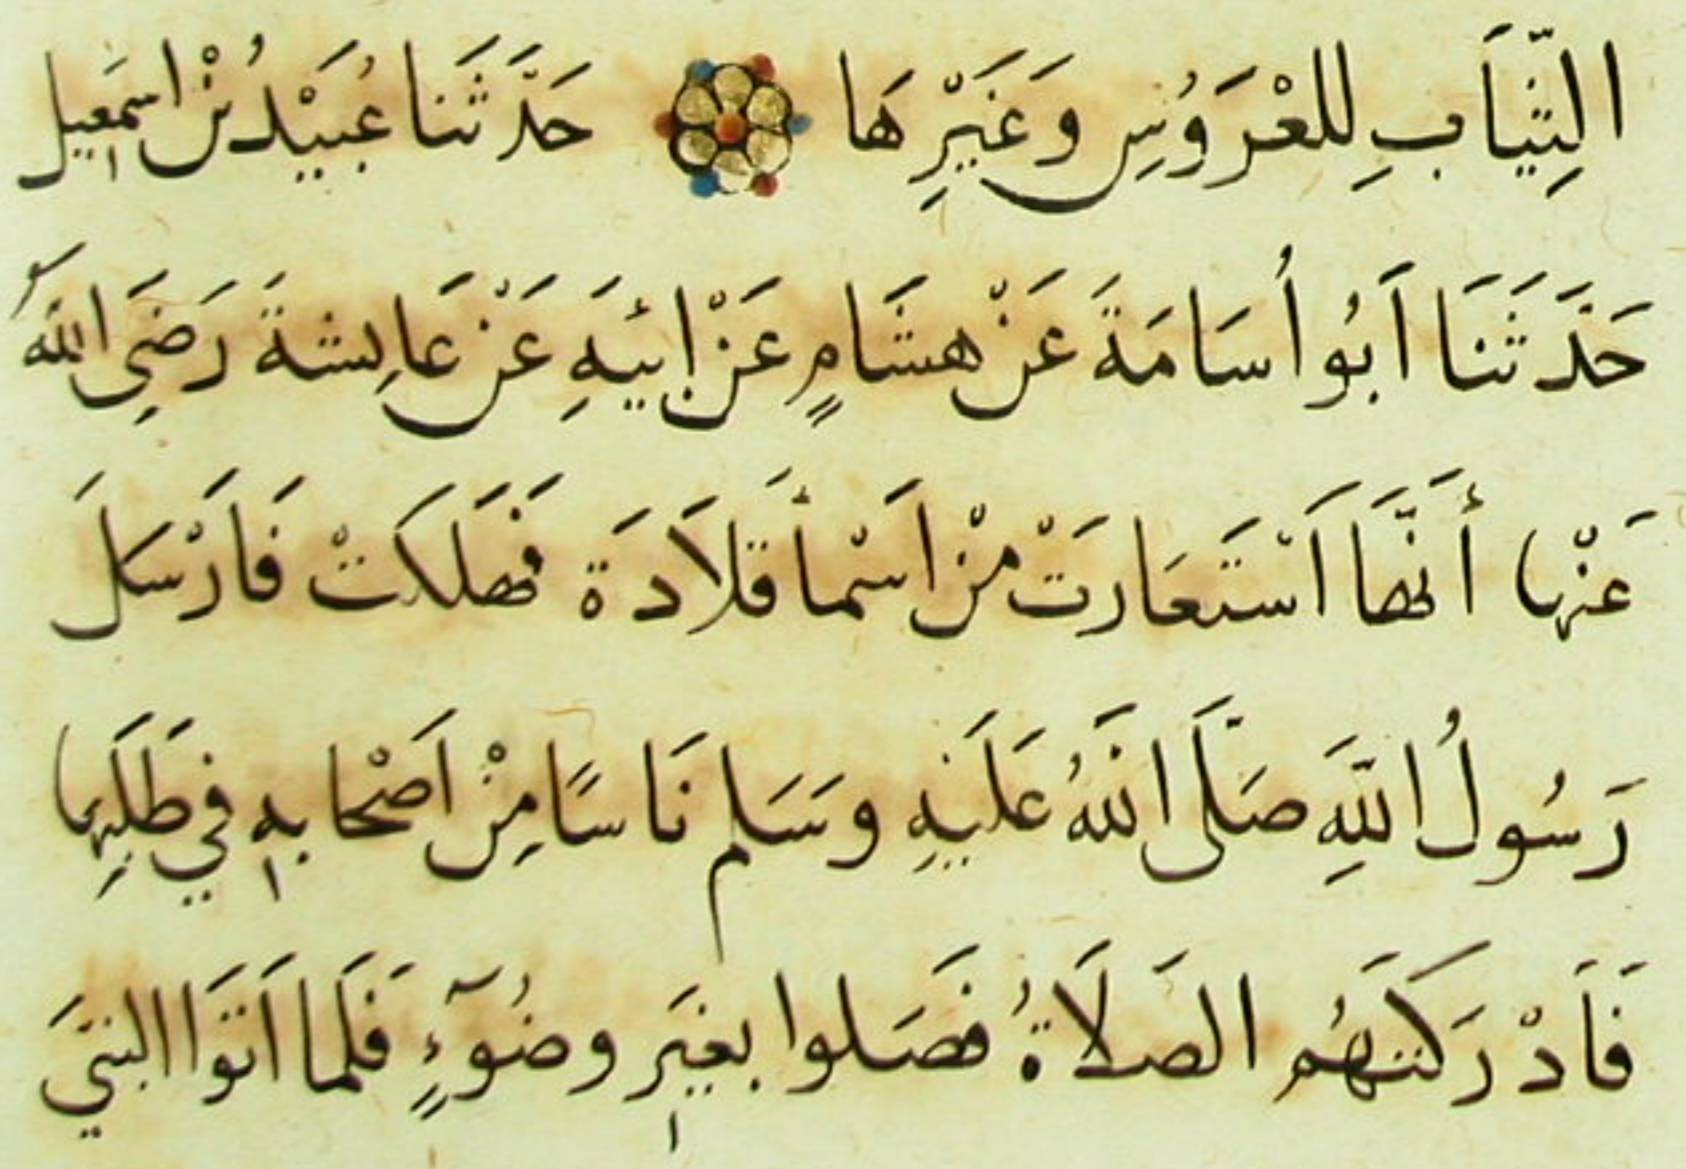 الثِّيَابِ لِلْعَرُوسِ وَغَيْرِهَا حَدَّثَنَا عُبَيْدُ بْنُ اسمَعِيل
حَدَّثَنَا اَبُو أُسَامَةَ عَنْ هشَامٍ عَنْ اَبيَهِ عَنْ عَايِشةَ رَضِيَ اللهُ
عَنْهَا أَنَّهَا اَسْتَعَارَتْ مِنْ اَسْمأَ قلَادَة فَهَلَكَتْ فَارْسَلَ
رَسُولُ اللَّهِ صَلَّى اللَّهُ عَلَيْهِ وسَلم نَاسًا مِنْ اَصْحابهِ في طَلَبِهَا
فَاَدْرَكَتْهُم الصَلَاةُ فَصَلوا بغَيرِ وضُوءٍ فَلَما اَتَوَا النبيَ